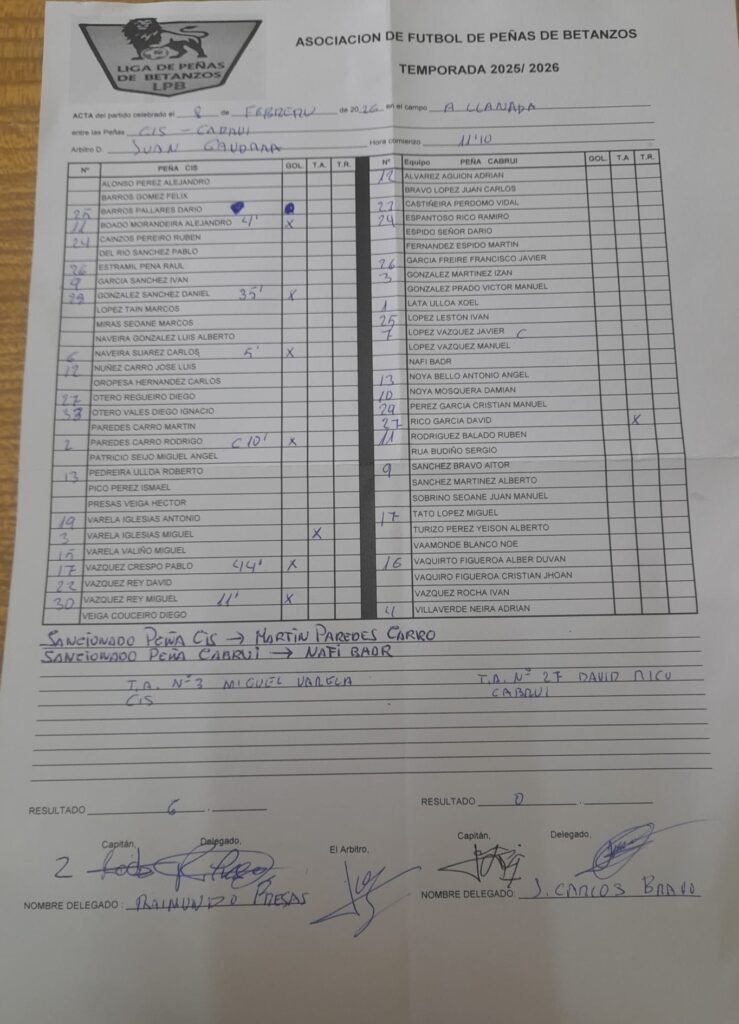 LIGA DE PEÑAS
DE BETANZOS
LPB
ASOCIACION DE FUTBOL DE PEÑAS DE BETANZOS
TEMPORADA 2025/ 2026
ACTA del partido celebrado el 8 de FEBRERU de 2026 en el campo A LLANADA
entre las Peñas CIS - CABRUI
Arbitro D. JUAN Hora comienzo 11'10
Nº PEÑA CIS GOL. T.A. T.R.
ALONSO PEREZ ALEJANDRO
BARROS GOMEZ FELIX
25 BARROS PALLARES DARIO
11 BOADO MORANDEIRA ALEJANDRO 4' X
24 CAINZOS PEREIRO RUBEN
DEL RIO SANCHEZ PABLO
26 ESTRAMIL PENA RAUL
9 GARCIA SANCHEZ IVAN
29 GONZALEZ SANCHEZ DANIEL 35' X
LOPEZ TAIN MARCOS
MIRAS SEOANE MARCOS
NAVEIRA GONZALEZ LUIS ALBERTO
6 NAVEIRA SUAREZ CARLOS 5' X
12 NUÑEZ CARRO JOSE LUIS
OROPESA HERNANDEZ CARLOS
27 OTERO REGUEIRO DIEGO
33 OTERO VALES DIEGO IGNACIO
PAREDES CARRO MARTIN
2 PAREDES CARRO RODRIGO C 10' X
PATRICIO SEIJO MIGUEL ANGEL
13 PEDREIRA ULLOA ROBERTO
PICO PEREZ ISMAEL
PRESAS VEIGA HECTOR
19 VARELA IGLESIAS ANTONIO
3 VARELA IGLESIAS MIGUEL X
15 VARELA VALIÑO MIGUEL
17 VAZQUEZ CRESPO PABLO 44' X
22 VAZQUEZ REY DAVID
30 VAZQUEZ REY MIGUEL 11' X
VEIGA COUCEIRO DIEGO
Nº Equipo PEÑA CABRUI GOL. T.A T.R.
12 ALVAREZ AGUION ADRIAN
BRAVO LOPEZ JUAN CARLOS
23 CASTIÑEIRA PERDOMO VIDAL
24 ESPANTOSO RICO RAMIRO
ESPIDO SEÑOR DARIO
FERNANDEZ ESPIDO MARTIN
26 GARCIA FREIRE FRANCISCO JAVIER
3 GONZALEZ MARTINEZ IZAN
GONZALEZ PRADO VICTOR MANUEL
1 LATA ULLOA XOEL
25 LOPEZ LESTON IVAN
7 LOPEZ VAZQUEZ JAVIER C
LOPEZ VAZQUEZ MANUEL
NAFI BADR
13 NOYA BELLO ANTONIO ANGEL
10 NOYA MOSQUERA DAMIAN
29 PEREZ GARCIA CRISTIAN MANUEL
27 RICO GARCIA DAVID X
11 RODRIGUEZ BALADO RUBEN
RUA BUDIÑO SERGIO
9 SANCHEZ BRAVO AITOR
SANCHEZ MARTINEZ ALBERTO
SOBRINO SEOANE JUAN MANUEL
17 TATO LOPEZ MIGUEL
TURIZO PEREZ YEISON ALBERTO
VAAMONDE BLANCO NOE
16 VAQUIRTO FIGUEROA ALBER DUVAN
VAQUIRO FIGUEROA CRISTIAN JHOAN
VAZQUEZ ROCHA IVAN
4 VILLAVERDE NEIRA ADRIAN
SANCIONADO PEÑA CIS → MARTIN PAREDES CARRO
SANCIONADO PEÑA CABRUI → NAFI BADR
T.A. Nº3 MIGUEL VARELA T.A. Nº 27 DAVID RICO
CIS CABRUI
RESULTADO 6 . RESULTADO 0 .
Capitán, Delegado, El Arbitro, Capitán, Delegado,
2
NOMBRE DELEGADO : RAIMUNDO PRESAS NOMBRE DELEGADO: J. CARLOS BRAVO